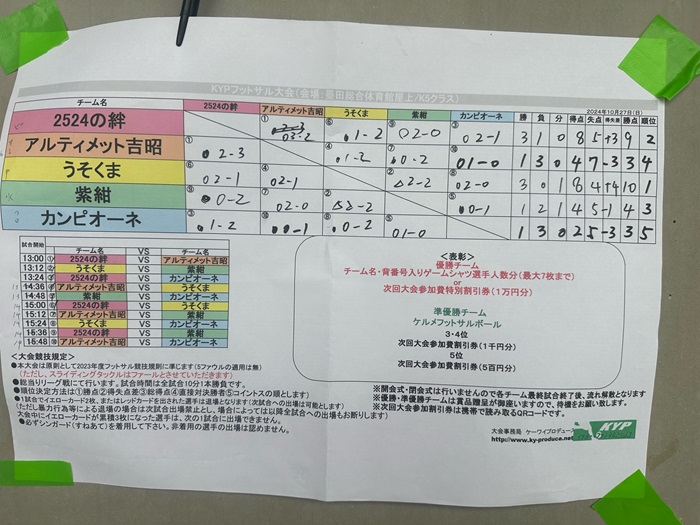 KYPフットサル大会(会場:墨田総合体育館屋上/K5クラス)
2024年10月27日(日)
チーム名 2524の絆 アルティメット吉昭 うそくま 紫紺 カンピオーネ 勝 負 分 得点 失点 得失差 勝点 順位
2524の絆 ① 03-2 ⑥ 1-2 ⑨ 02-0 ③ 02-1 3 1 0 8 5 +3 9 2
アルティメット吉昭 ① 2-3 ④ 1-2 ⑦ 0-2 ⑩ 01-0 1 3 0 4 7 -3 3 4
うそくま ⑥ 02-1 ④ 02-1 ② △2-2 ⑧ 02-0 3 0 1 8 4 +4 10 1
紫紺 ⑨ 0-2 ⑦ 02-0 ② △2-2 ⑤ 0-1 1 2 1 4 5 -1 4 3
カンピオーネ ③ 1-2 ⑩ 0-1 ⑧ 0-2 ⑤ 01-0 1 3 0 2 5 -3 3 5
試合開始 チーム名 VS チーム名
13:00 ① 2524の絆 VS アルティメット吉昭
13:12 ② うそくま VS 紫紺
13:24 ③ 2524の絆 VS カンピオーネ
14:36 ④ アルティメット吉昭 VS うそくま
14:48 ⑤ 紫紺 VS カンピオーネ
15:00 ⑥ 2524の絆 VS うそくま
15:12 ⑦ アルティメット吉昭 VS 紫紺
15:24 ⑧ うそくま VS カンピオーネ
15:36 ⑨ 2524の絆 VS 紫紺
15:48 ⑩ アルティメット吉昭 VS カンピオーネ
<表彰>
優勝チーム
チーム名・背番号入りゲームシャツ選手人数分(最大7枚まで)
or
次回大会参加費特別割引券(1万円分)
準優勝チーム
ケルメフットサルボール
3・4位
次回大会参加費割引券(1千円分)
5位
次回大会参加費割引券(5百円分)
<大会競技規定>
●本大会は原則として2023年度フットサル競技規則に準じます(5ファウルの適用は無)
(ただし、スライディングタックルはファールとさせていただきます)
●総当りリーグ戦にて行います。試合時間は全試合10分1本勝負です。
●順位決定方法は①勝点②得失点差③総得点④直接対決勝者⑤コイントスの順とします)
●1試合でイエローカード2枚、またはレッドカードを出された選手は退場となります(次試合への出場は可能とします)
(ただし暴力行為等による退場の場合は次試合出場禁止とし、場合によっては以降全試合への出場もお断りします)
大会中にイエローカードが累積3枚になった選手は、次の1試合に出場できません。
●必ずシンガード(すねあて)を着用して下さい。非着用の選手の出場は認めません。
※開会式・閉会式は行いませんので各チーム最終試合終了後、流れ解散となります
※優勝・準優勝チームは賞品贈呈が御座いますので、待機をお願い致します。
※次回大会参加費割引券は携帯で読み取るQRコードです。
大会事務局 ケーワイプロデュース
http://www.ky-produce.net
KYP